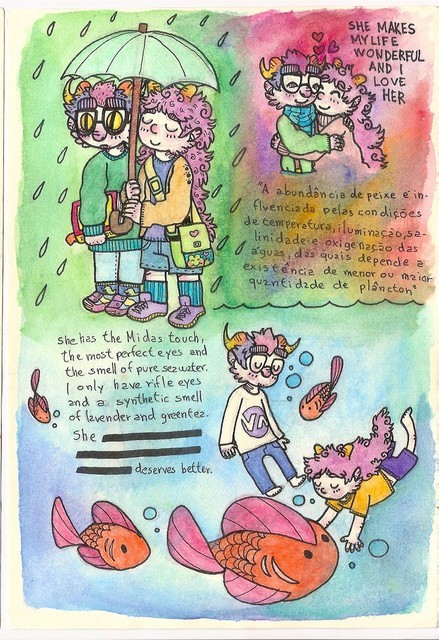 SHE MAKES
MY LIFE
WONDERFUL
AND I
LOVE
HER
"A abundância de peixe é in-
fluenciada pelas condições
de temperatura, iluminação, sa-
linidade e oxigenação das
águas, das quais depende a
existência de menor ou maior
quantidade de plâncton"
she has the Midas touch,
the most perfect eyes and
the smell of pure seawater.
I only have rifle eyes
and a synthetic smell
of lavender and greentea.
She
deserves better.